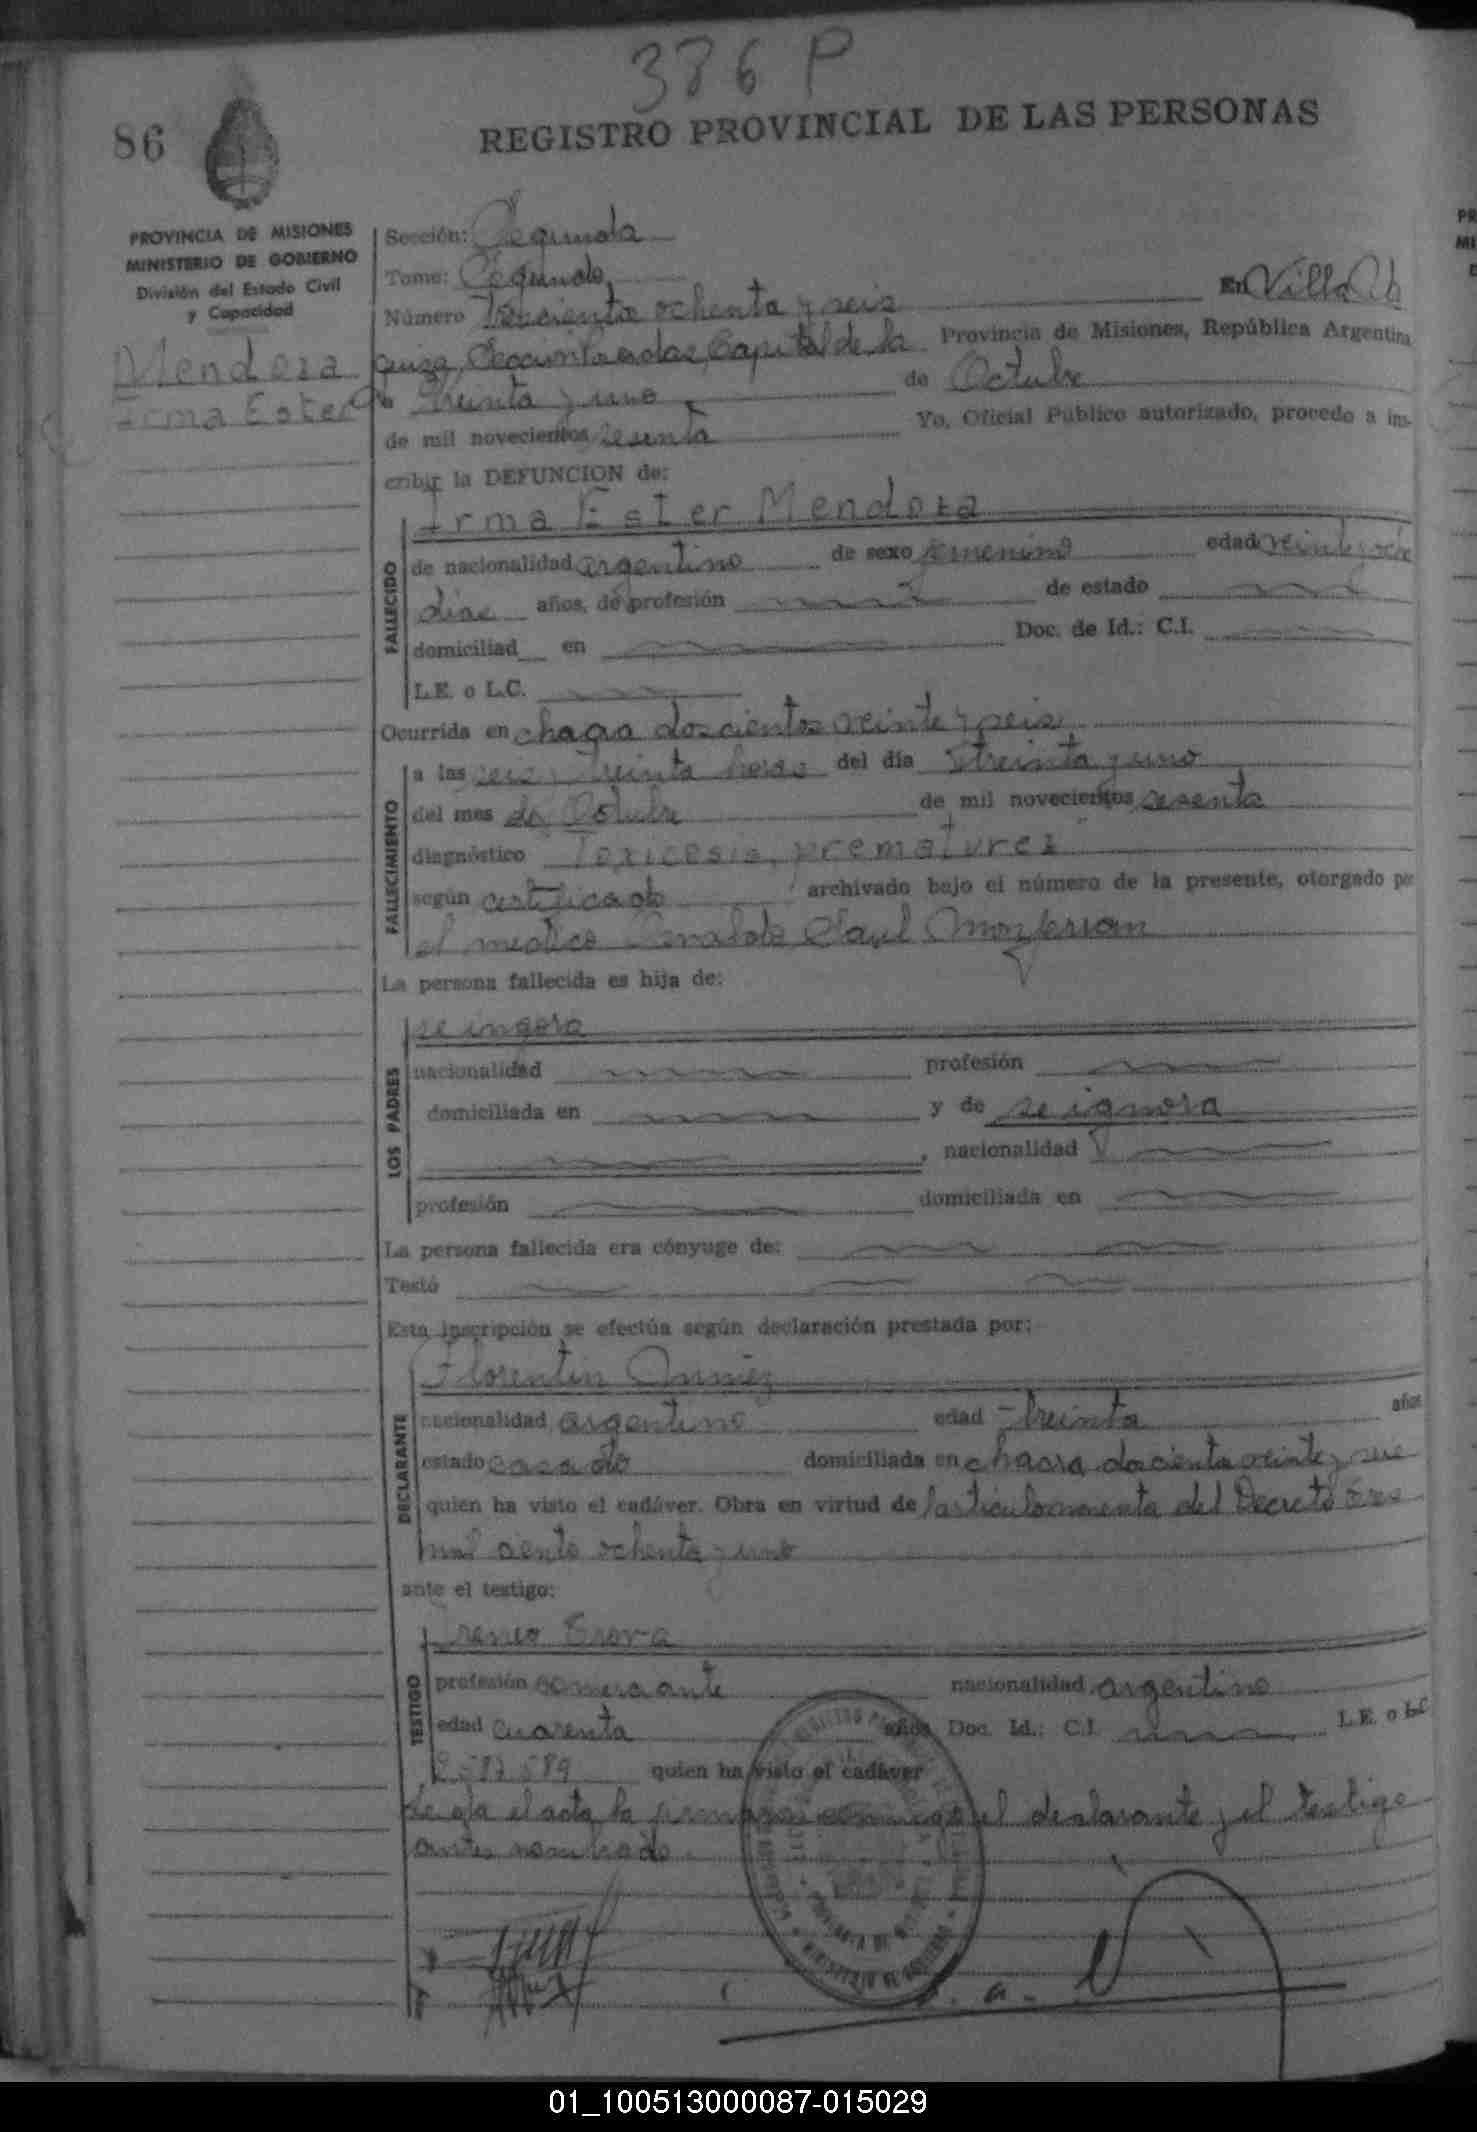 386 P
86
REGISTRO PROVINCIAL DE LAS PERSONAS
PROVINCIA DE MISIONES
MINISTERIO DE GOBIERNO
División del Estado Civil
y Capacidad
Mendoza
Irma Ester
Sección: Segunda
Tomo: Segundo
Número Trescientos ochenta y seis En Villa
Capital de la Provincia de Misiones, República Argentina
a treinta y uno de Octubre
de mil novecientos sesenta Yo, Oficial Público autorizado, procedo a ins-
cribir la DEFUNCION de:
Irma Ester Mendoza
FALLECIDO
de nacionalidad argentino de sexo femenino edad veintiocho
dias años, de profesión de estado
domiciliad en Doc. de Id.: C.I.
L.E. o L.C.
Ocurrida en chacra doscientos veinte y seis
FALLECIMIENTO
a las seis y treinta horas del día treinta y uno
del mes de Octubre de mil novecientos sesenta
diagnóstico Toxicosis, prematurez
según certificado archivado bajo el número de la presente, otorgado por
el medico Saul
La persona fallecida es hija de:
LOS PADRES
se ingora
nacionalidad profesión
domiciliada en y de se ignora
, nacionalidad
profesión domiciliada en
La persona fallecida era cónyuge de:
Testó
Esta inscripción se efectúa según declaración prestada por:
DECLARANTE
Florentin
nacionalidad argentino edad treinta años
estado casado domiciliada en chacra docienta veinte y seis
quien ha visto el cadáver. Obra en virtud de del Decreto tres
mil ciento ochenta y uno
ante el testigo:
TESTIGO
Ireneo
profesión comerciante nacionalidad argentino
edad cuarenta años Doc. Id.: C.I. L.E. o L.C
2.587.589 quien ha visto el cadáver
Leida el acta la firman conmigo el declarante y el testigo
antes nombrado.
01_100513000087-015029